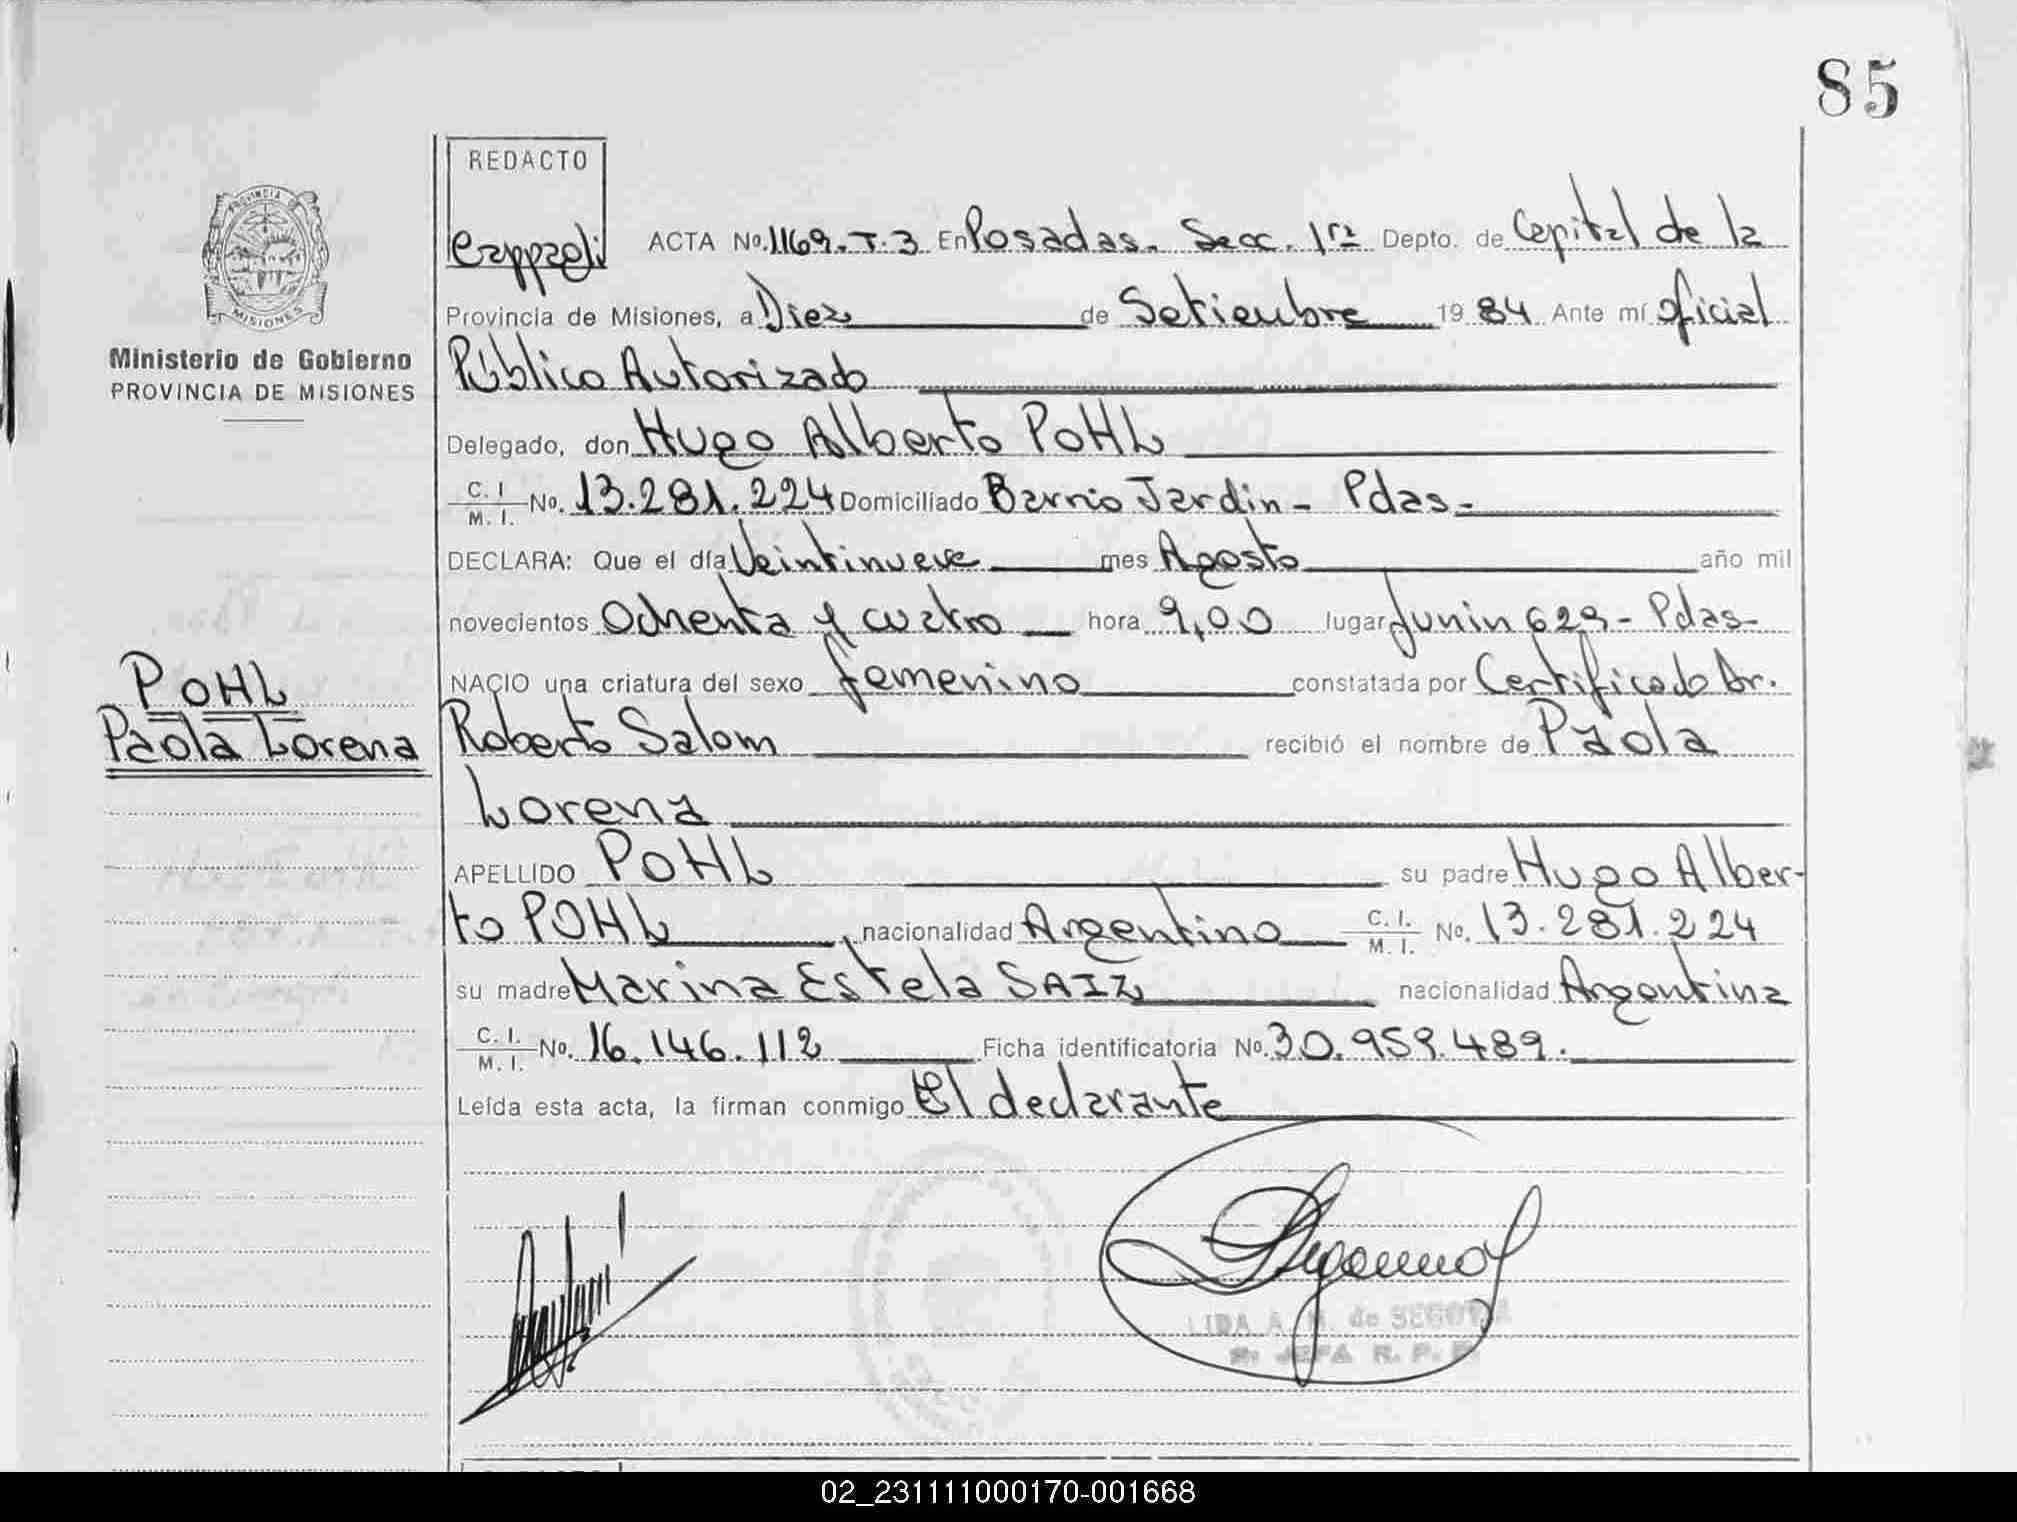 85
REDACTO
Cappaeli
PROVINCIA
MISIONES
Ministerio de Gobierno
PROVINCIA DE MISIONES
ACTA No. 1169. T. 3 En Posadas. Secc. 1ra Depto. de Capital de la
Provincia de Misiones, a Diez de Setiembre 1984 Ante mí oficial
Público Autorizado
Delegado, don Hugo Alberto POHL
C. I. M. I. No. 13.281.224 Domiciliado Barrio Jardin - Pdas-
DECLARA: Que el día Veintinueve mes Agosto año mil
novecientos Ochenta y cuatro hora 9,00 lugar Junin 629- Pdas-
POHL
Paola Lorena
NACIO una criatura del sexo femenino constatada por Certificado Dr.
Roberto Salom recibió el nombre de Paola
Lorena
APELLIDO POHL su padre Hugo Alber-
to POHL, nacionalidad Argentino C. I. M. I. No. 13.281.224
su madre Marina Estela SAIZ nacionalidad Argentina
C. I. M. I. No. 16.146.112 Ficha identificatoria No. 30.959.489.
Leída esta acta, la firman conmigo El declarante
LIDA A. M. de SEGOVIA
JEFA R. P.
02_231111000170-001668